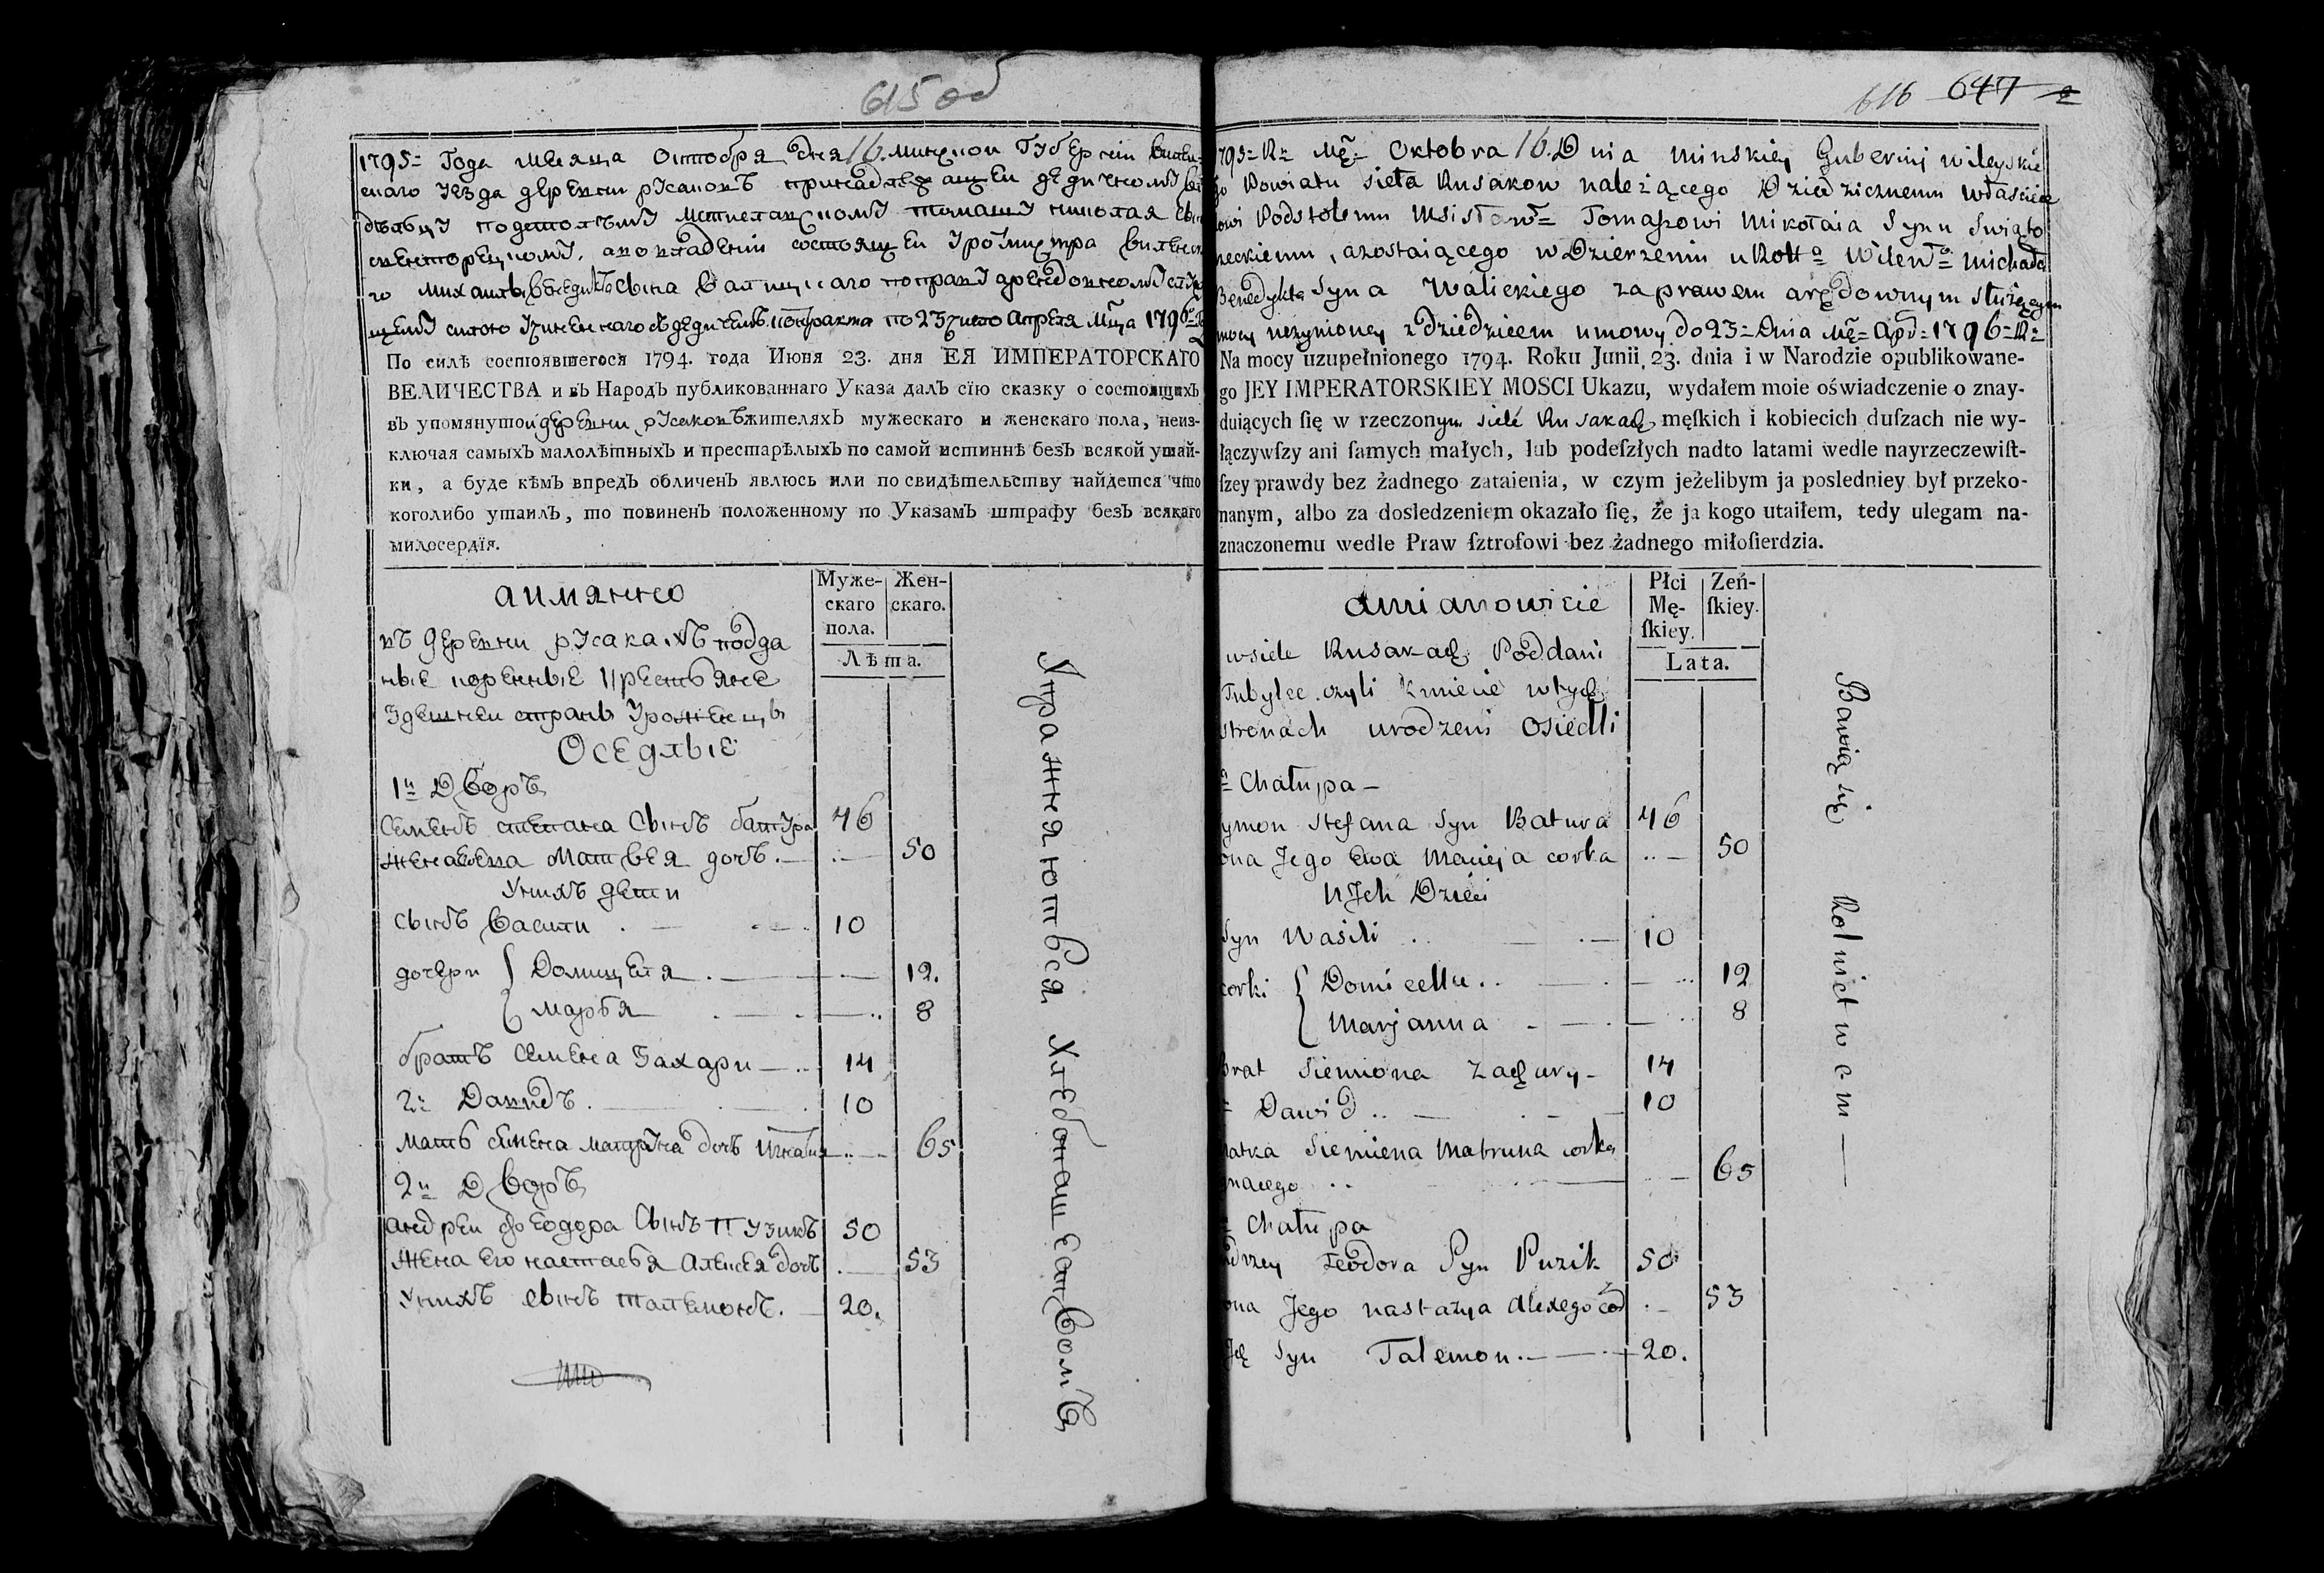 615 об
1795 Года месяца Октобря дня 16. минской Губернии вилей-
скаго уезда деревни русаковъ принадлежащей дедичному
подстолъму Мстиславскому томашу николая сы
состоящей
го михаила бенедиктъ сына Валицкаго поправу арендовному
контракта по 23 число Апреля мца 1796
По силѣ состоявшегося 1794. года Июня 23. дня ЕЯ ИМПЕРАТОРСКАГО
ВЕЛИЧЕСТВА и въ Народъ публикованнаго Указа далъ сїю сказку о состоящихъ
въ упомянутой деревни русаковъ жителяхъ мужескаго и женскаго пола, неиз-
ключая самыхъ малолѣтныхъ и престарѣлыхъ по самой истиннѣ безъ всякой утай-
ки, а буде кѣмъ впредъ обличенъ явлюсь или по свидѣтельству найдется что
коголибо утаилъ, то повиненъ положенному по Указамъ штрафу безъ всякаго
милосердїя.
аимянно
Муже-
скаго
пола.
Жен-
скаго.
Лѣта.
въ деревни русакахъ подда
ные коренные крестьяне
здешней страны уроженцы
Оседлые
1й Дворъ
Семенъ степана Сынъ батура 46
жена Ева Матвея дочь. 50
Унихъ дети
сынъ Васили 10
дочери { Домицеля 12.
марья 8
братъ Семена Захари 14
2й Давидъ 10
мать семена матруна дочь игнатия 65
2й Дворъ
андреи феодора Сынъ Пузикъ 50
жена его настасья Алексея дочь 53
Унихъ сынъ талемонъ. 20.
Упражняютъся Хлебопашеcтвомъ
616 647
1795 Ru Mca Oktobra 16. Dnia minskiey Gubernij wileyskie
go Powiatu sieła Rusakow należącego Dziedzicznemu właścicie
lowi Podstolemu Msisław Tomaszowi Mikołaia Synu Swiąto
rzeckiemu, azostaiącego w Dzierzeniu u Rott Wilen michała
Benedykta Syna Walickiego zaprawem arędownym służącym
mocy uczynioney z dziedzicem umowy do 23 Dnia Mca Apr 1796 Ru
Na mocy uzupełnionego 1794. Roku Junii 23. dnia i w Narodzie opublikowane-
go JEY IMPERATORSKIEY MOSCI Ukazu, wydałem moie oświadczenie o znay-
duiących ſię w rzeczonym siele Rusakach męſkich i kobiecich duſzach nie wy-
łączywſzy ani ſamych małych, lub podeſzłych nadto latami wedle nayrzeczewiſt-
ſzey prawdy bez żadnego zataienia, w czym jeżelibym ja posledniey był przeko-
nanym, albo za dosledzeniem okazało ſię, że ja kogo utaiłem, tedy ulegam na-
znaczonemu wedle Praw ſztrofowi bez żadnego miłoſierdzia.
amianowicie
Płci
Mę-
ſkiey.
Zeń-
ſkiey.
Lata.
wsiele Rusakach Poddani
Tubylce czyli kmiecie wtych
stronach urodzeni Osiedli
Chałupa
ymon Stefana Syn Batura 46
ona Jego Ewa Macieja corka 50
U Jch Dzieci
Syn Wasili 10
corki { Domicella 12
Marjanna 8
Brat Siemiona Zachary 14
Dawid 10
matka Siemiena Matruna corka
gnacego 65
Chałupa
ndrzey Teodora Syn Puzik 50
ona Jego nastazya Alexego cor 53
Jch Syn Talemon. 20.
Bawią się Rolnictwem